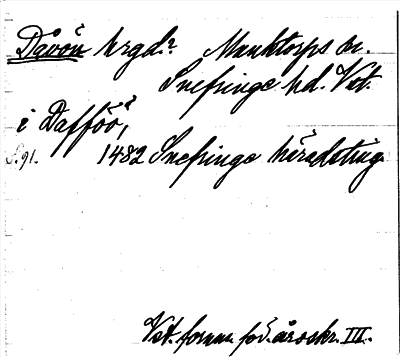 Dåvön hrgd. Munktorps sn.
Snefringe hd. Vst.
i Daffôô,
S. 91. 1482 Snefringe häradsting
Vst. fornm. för. årsskr. III.